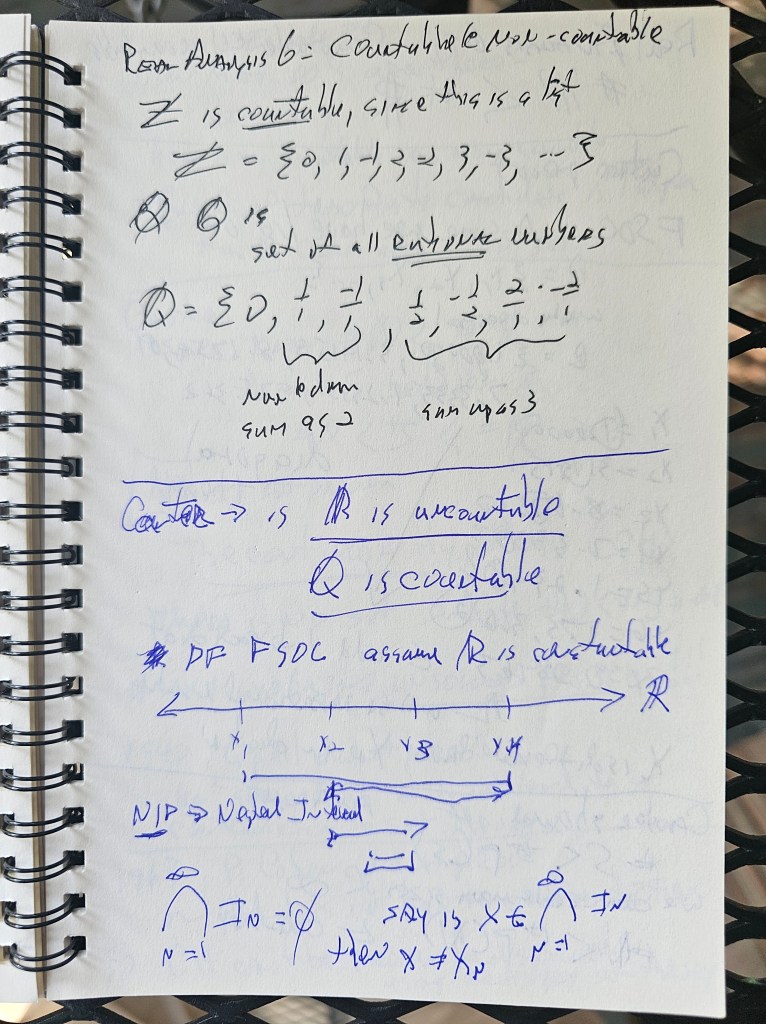 Real Analysis 6 = Countable & Non-countable
ℤ is countable, since this is a list
ℤ = {0, 1, -1, 2, -2, 3, -3, ...}
ℚ ℚ is
set of all rational numbers
ℚ = {0, 1/1, -1/1, 1/2, -1/2, 2/1, -2/1
num & denom
sum as 2
sum up as 3
Cantor → is ℝ is uncountable
ℚ is countable
* PF FSOC assume ℝ is countable
ℝ
x₁ x₂ x3 x4
NIP ⇒ Nested Interval
∞ ∞
⋂ Iₙ = ∅ say is x ∈ ⋂ Iₙ
n=1 then x ≠ xₙ n=1